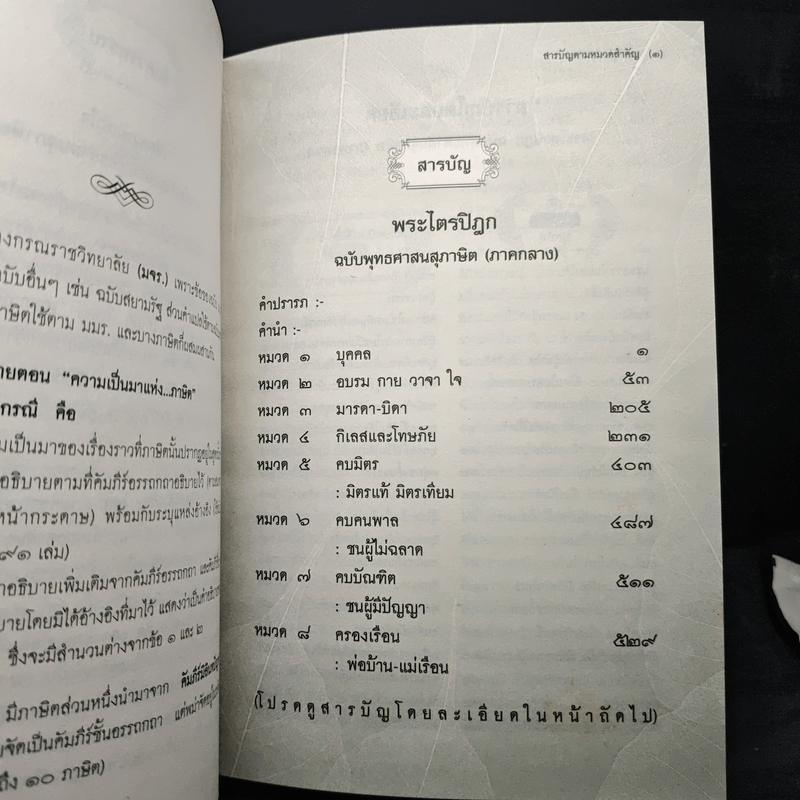 งกรณราชวิทยาลัย (มจร.) เพราะ
ฉบับอื่นๆ เช่น ฉบับสยามรัฐ ส่วนคำแปลใช้ตาม
ภาษิตใช้ตาม มมร. และบางภาษิตที่
ายตอน “ความเป็นมาแห่ง...ภาษิต”
กรณี คือ
มเป็นมาของเรื่องราวที่ภาษิตนั้นปรากฏอยู่
อธิบายตามที่คัมภีร์อรรถกถาอธิบายไว้
หน้ากระดาษ) พร้อมกับระบุแหล่งอ้างอิง
๙๑ เล่ม)
าอธิบายเพิ่มเติมจากคัมภีร์อรรถกถา
บายโดยมิได้อ้างอิงที่มาไว้ แสดงว่าเป็นคำอธิบาย
ซึ่งจะมีสำนวนต่างจากข้อ ๑ และ ๒
มีภาษิตส่วนหนึ่งนำมาจาก
จัดเป็นคัมภีร์ชั้นอรรถกถา แต่พม่าจัด
ถึง ๑๐ ภาษิต)
สารบัญตามหมวดสำคัญ (๑)
สารบัญ
พระไตรปิฎก
ฉบับพุทธศาสนสุภาษิต (ภาคกลาง)
คำปรารภ :-
คำนำ :-
หมวด ๑ บุคคล ๑
หมวด ๒ อบรม กาย วาจา ใจ ๕๓
หมวด ๓ มารดา-บิดา ๒๐๕
หมวด ๔ กิเลสและโทษภัย ๒๓๑
หมวด ๕ คบมิตร ๔๐๓
: มิตรแท้ มิตรเทียม
หมวด ๖ คบคนพาล ๔๘๗
: ชนผู้ไม่ฉลาด
หมวด ๗ คบบัณฑิต ๕๑๑
: ชนผู้มีปัญญา
หมวด ๘ ครองเรือน ๕๒๙
: พ่อบ้าน-แม่เรือน
(โปรดดูสารบัญโดยละเอียดในหน้าถัดไป)